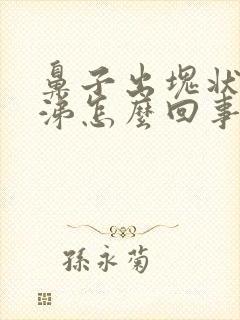 鼻子出塊狀
涕怎麼回事
孫永菊